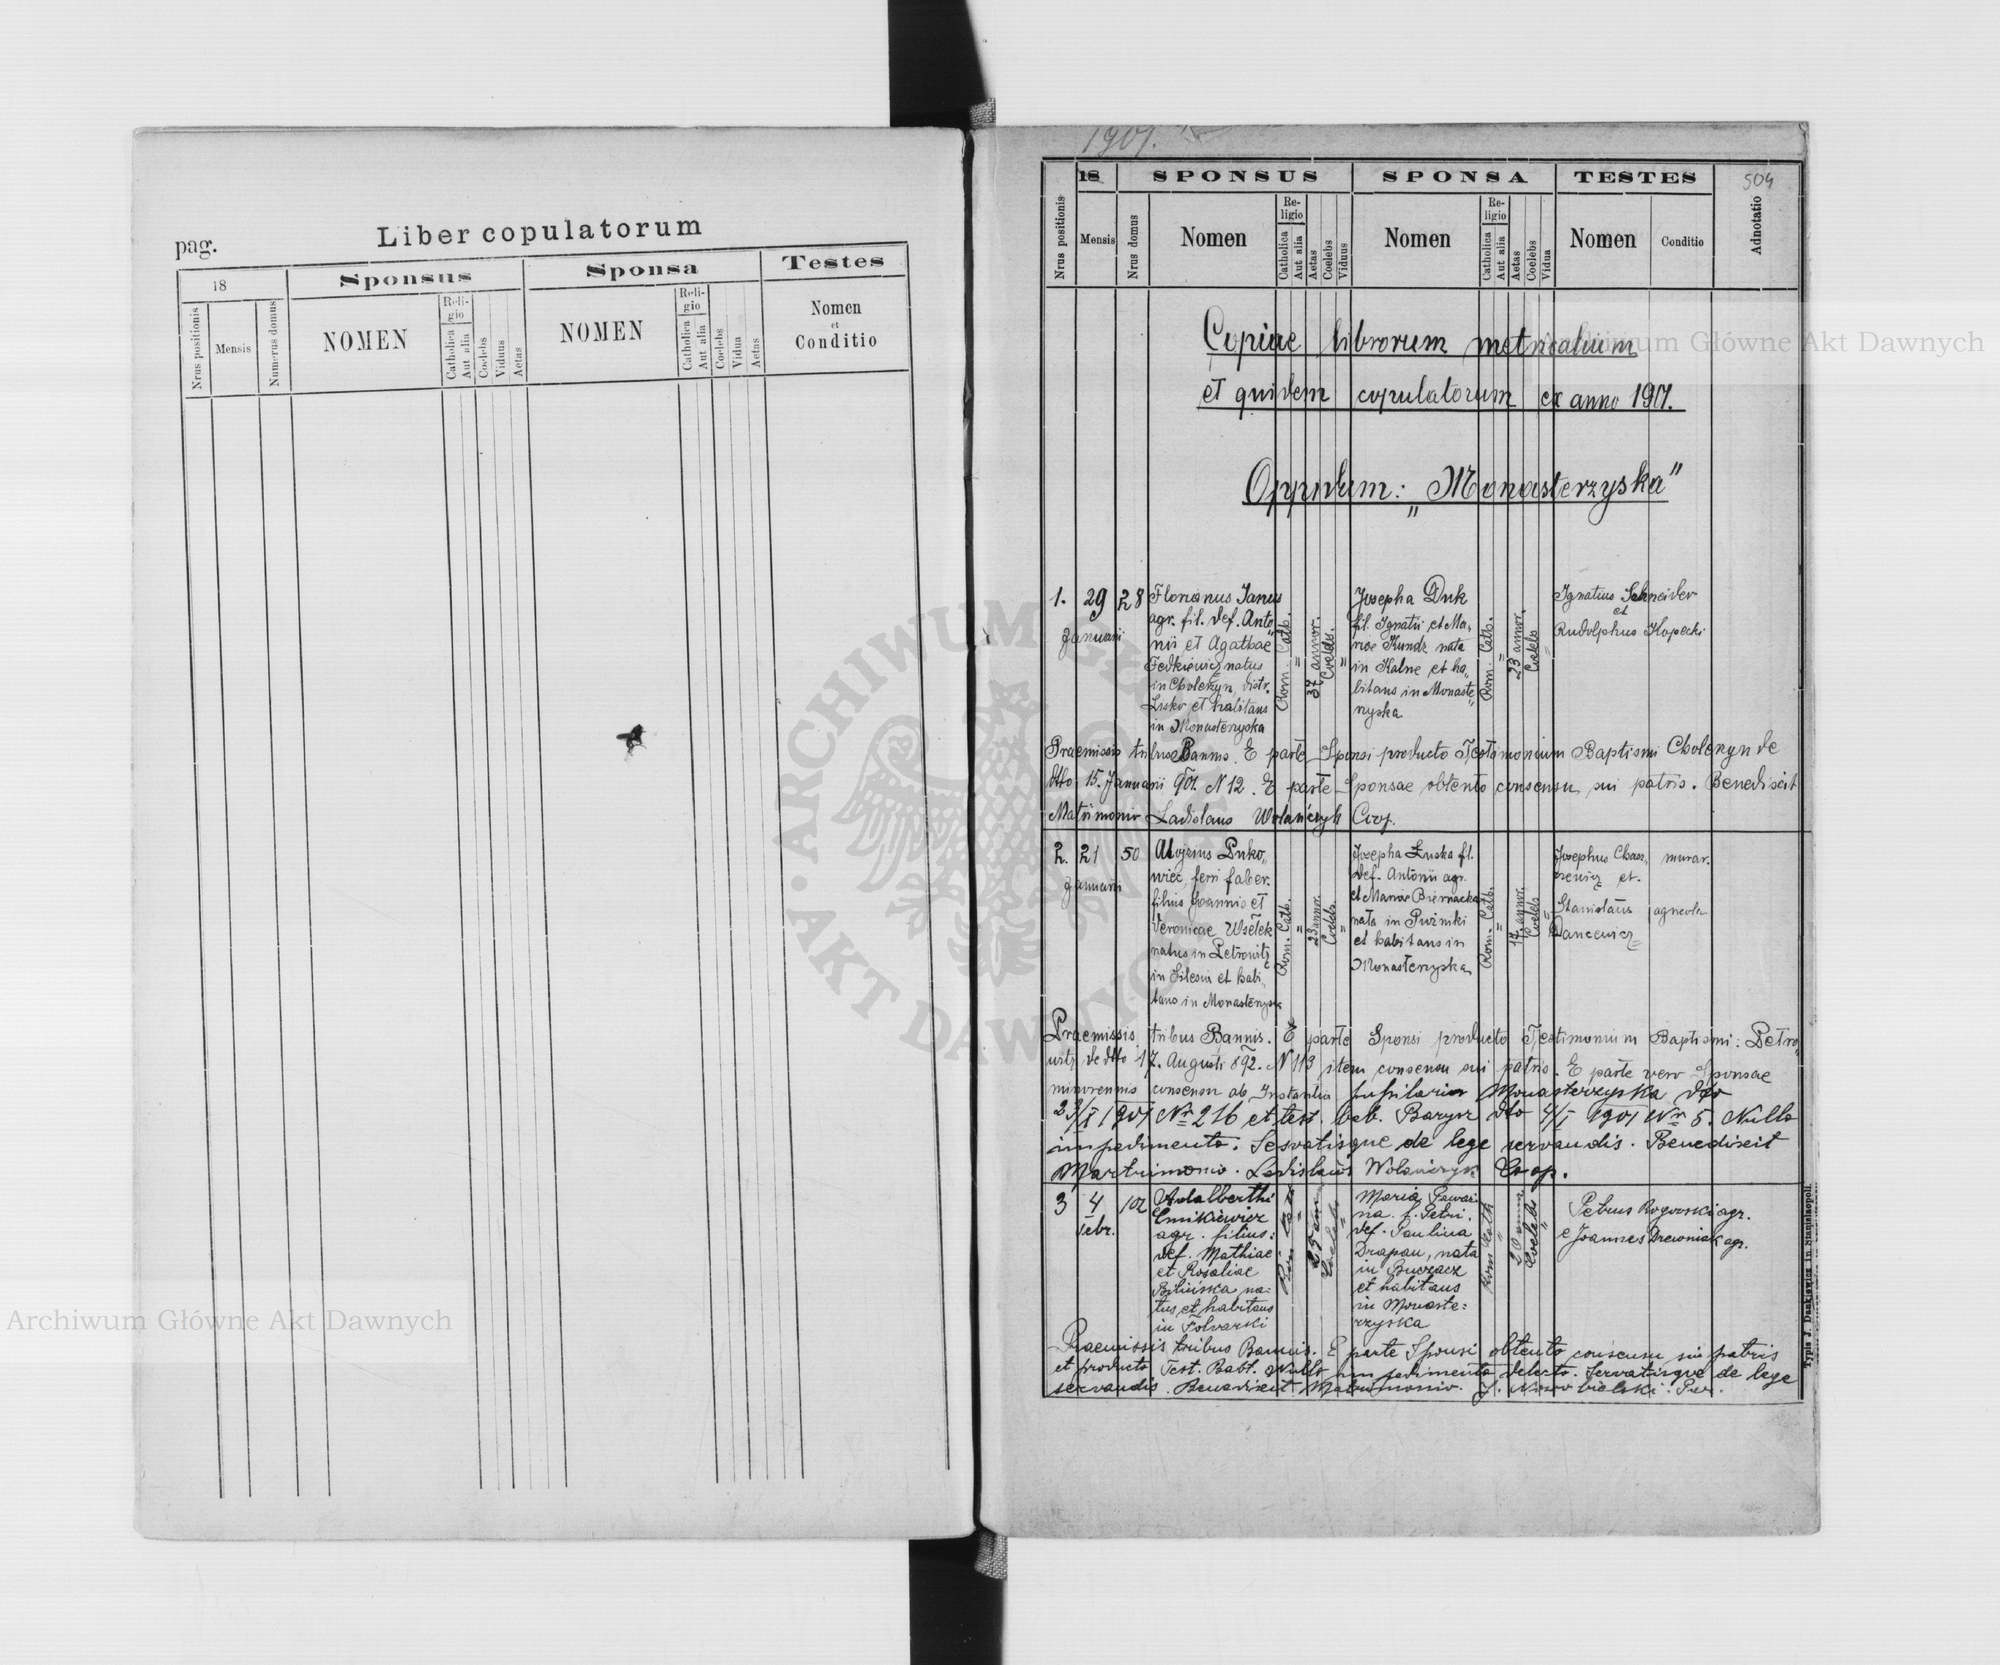 pag.
Liber copulatorum
18
Sponsus
Sponsa
Testes
Nrus positionis
Mensis
Numerus domus
NOMEN
Religio
Catholica
Aut alia
Coelebs
Viduus
Aetas
NOMEN
Religio
Catholica
Aut alia
Coelebs
Vidua
Aetas
Nomen
et
Conditio
1901.
18
SPONSUS
SPONSA
TESTES
504
Nrus positionis
Mensis
Nrus domus
Nomen
Religio
Catholica
Aut alia
Aetas
Coelebs
Viduus
Nomen
Religio
Catholica
Aut alia
Aetas
Coelebs
Vidua
Nomen
Conditio
Adnotatio
Copiae librorum metricalium
et quidem copulatorum ex anno 1901.
Oppidum: "Monasterzyska"
1.
29
Januarii
28
Florianus Janus
agr. fil. def. Anto
nii et Agathae
Fedkiewicz natus
in Cholekyn, distr.
Lisko et habitans
in Monasterzyska
Rom. Cath.
37 annor.
Coelebs
Josepha Duk
fil. Ignatii et Ma„
riae Kundz nata
in Kalne et ha„
bitans in Monaste„
rzyska
Rom. Cath.
23 annor.
Coelebs
Ignatius Schneider
et
Rudolphus Kopecki
Praemissis tribus Bannis. E parte Sponsi producto Testimonium Baptismi Cholekyn de
dtto 15. Januarii 901. N 12. E parte Sponsae obtento consensu sui patris. Benedixit
Matrimonio Ladislaus Wolańczyk Coop.
2.
21
Januarii
50
Alojzius Puko„
wiec, ferri faber.
filius Joannis et
Veronicae Wsetek
natus in Petrowitz
in Silesia et habi„
tans in Monasterzyska
Rom. Cath.
23 annor.
Coelebs
Josepha Łuska fl.
def. Antonii agr.
et Mariae Biernacka
nata in Puźniki
et habitans in
Monasterzyska
Rom. Cath.
17 annor.
Coelebs
Josephus
et
Stanislaus
Dancewicz
murar.
agricola
Praemissis tribus Bannis. E parte Sponsi producto Testimonium Baptismi: Petro„
witz de dtto 17. Augusti 892. N 113 item consensu sui patris. E parte vero Sponsae
minorennis consensu ab Instantia pupilaris Monasterzyska dto
23/I 1901 Nr 216 et test. bab. Barysz dto 4/I 1901 Nr 5. Nullo
impedimento. Servatisque de lege servandis. Benedixit
Martrimonio. Ladislaus Wolańczyk Coop.
3
4
Febr.
102
Adalberthi
Cmikiewicz
agr. filius:
def. Mathiae
et Rosaliae
Bilińska na:
tus et habitans
in Folwarki
Rom. Cath
25 ann
Coelebs
Maria
na. f. Petri,
def. Paulina
Drapau, nata
in Buczacz
et habitans
in Monaste:
rzyska
Rom Cath
20 annor
Coelebs
Petrus Rogowski agr.
e Joannes Drewniak agr.
Praemissis tribus Bannis. E parte Sponsi obtento consensu sui patris
et producto Test. Babt. Nullo impedimento detecto. Servatisque de lege
servandis. Benedixit Matrimonio. J. bielski.
Typis J. Dankiewicz in Stanislaopoli.
Archiwum Główne Akt Dawnych
Archiwum Główne Akt Dawnych
ARCHIWUM GŁÓWNE
AKT DAWNYCH